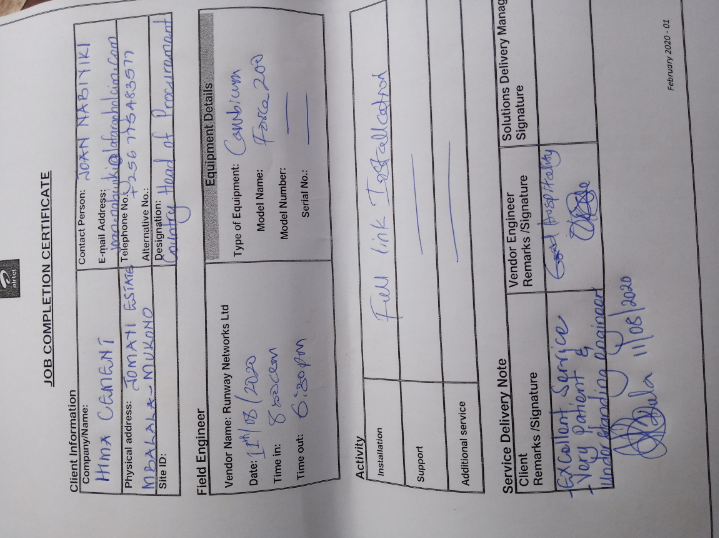 airtel
JOB COMPLETION CERTIFICATE
Client Information
Company/Name:
HIMA CEMENT
Physical address: JOMAYI ESTATE
MBALALA - MUKONO
Site ID:
Contact Person: JOAN NABIYIKI
E-mail Address:
Telephone No.: +256 775483577
Alternative No.:
Designation:
Country Head of Procurement
Field Engineer
Vendor Name: Runway Networks Ltd
Date: 11th/08/2020
Time in: 8:00am
Time out: 6:30pm
Equipment Details
Type of Equipment: Cambium
Model Name: Force 200
Model Number:
Serial No.:
Activity
Installation
Full link Installation
Support
Additional service
Service Delivery Note
Client
Remarks /Signature
Vendor Engineer
Remarks /Signature
Solutions Delivery Manag
Signature
- Excellent Service
- Very Patient &
Understanding engineer
11/08/2020
Good Hospitality
February 2020 - 01